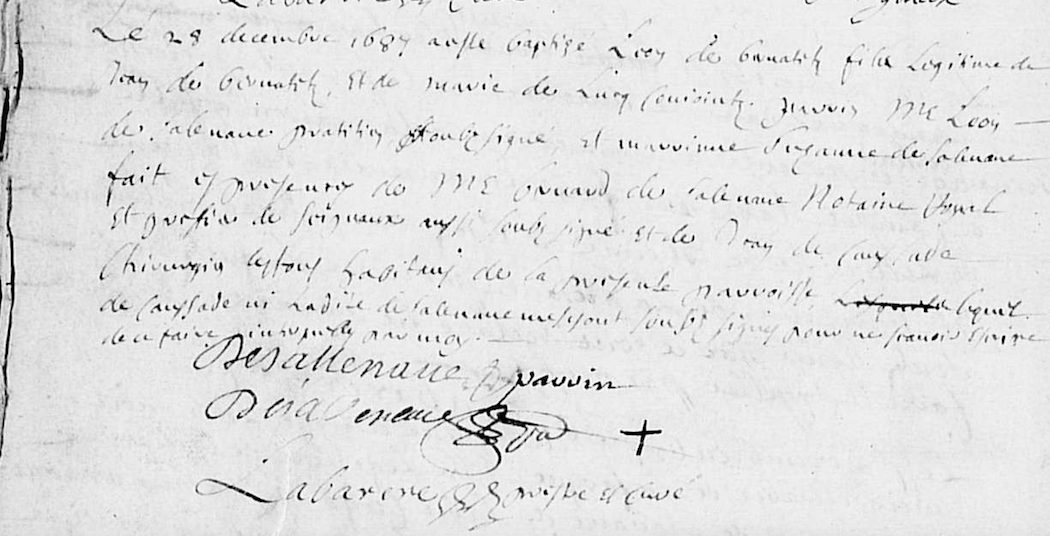 Le 28 decembre 1687 a este baptizé Leon de filz Legitime de
Jean de et de marie de Lucq conjointz. parrin Me Leon
de salenave pratitien soubz signé et marrinne Suzanne de Salenave
fait es presences de Me bernard de salenave Notaire Royal
et greffier de seignaux aussi soubz signé et de Jean de caussade
chirurgien les tous habitans de la presente parroisse lequel
de caussade ni ladite de salenave ne se sont soubz signes pour ne scavoir escrire
de ce faire par moy.
Desallenave parrin
Desallenave
+
Labarere prestre et curé